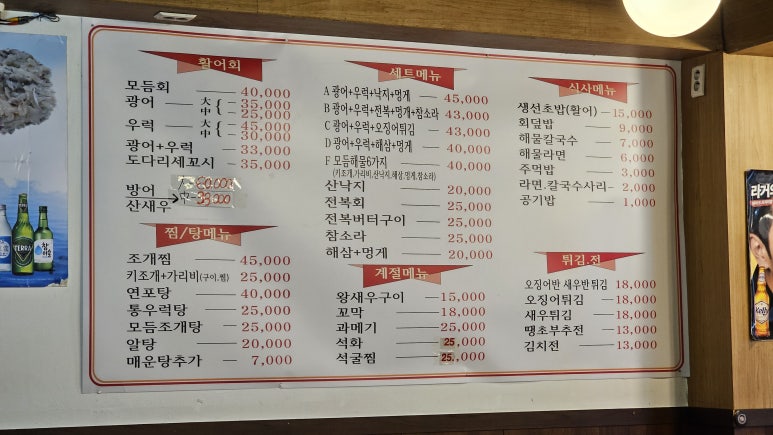 활어회
모듬회 40,000
광어 大 35,000
中 25,000
우럭 大 45,000
中 30,000
광어+우럭 33,000
도다리세꼬시 35,000
방어
산새우
찜/탕메뉴
조개찜 45,000
키조개+가리비(구이.찜) 25,000
연포탕 40,000
통우럭탕 25,000
모듬조개탕 25,000
알탕 20,000
매운탕추가 7,000
세트메뉴
A 광어+우럭+낙지+멍게 45,000
B 광어+우럭+전복+멍게+참소라 43,000
C 광어+우럭+오징어튀김 43,000
D 광어+우럭+해삼+멍게 40,000
F 모듬해물6가지 40,000
(키조개,가리비,산낙지,해삼,멍게,참소라)
산낙지 20,000
전복회 25,000
전복버터구이 25,000
참소라 25,000
해삼+멍게 20,000
계절메뉴
왕새우구이 15,000
꼬막 18,000
과메기 25,000
석화 25,000
석굴찜 25,000
식사메뉴
생선초밥(활어) 15,000
회덮밥 9,000
해물칼국수 7,000
해물라면 6,000
주먹밥 3,000
라면.칼국수사리 2,000
공기밥 1,000
튀김.전
오징어반 새우반튀김 18,000
오징어튀김 18,000
새우튀김 18,000
땡초부추전 13,000
김치전 13,000
TERRA
Kelly